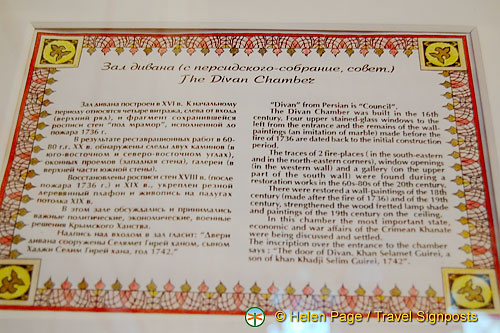 Зал дивана (с персидского-собрание, совет.)
The Divan Chamber
Зал дивана построен в XVI в. К начальному
периоду относятся четыре витража, слева от входа
(верхний ряд), и фрагмент сохранившейся
росписи стен "под мрамор", исполненной до
пожара 1736 г.
В результате реставрационных работ в 60-
80 г.г. XX в. обнаружены следы двух каминов (в
юго-восточном и северо-восточном углах),
оконных проемов (западная стена), галереи (в
верхней части южной стены).
Восстановлены росписи стен XVIII в. (после
пожара 1736 г.) и XIX в., укреплен резной
деревянный плафон и живопись на падугах
потолка XIX в.
В этом зале обсуждались и принимались
важные политические, экономические, военные
решения Крымского Ханства.
Надпись над входом в зал гласит: "Двери
дивана сооружены Селямет Гирей ханом, сыном
Хаджи Селим Гирея хана, год 1742."
"Divan" from Persian is "Council".
The Divan Chamber was built in the 16th
century. Four upper stained-glass windows to the
left from the entrance and the remains of the wall-
paintings (an imitation of marble) made before the
fire of 1736 are dated back to the initial construction
period.
The traces of 2 fire-places (in the south-eastern
and in the north-eastern corners), window openings
(in the western wall) and a gallery (on the upper
part of the south wall) were found during a
restoration works in the 60s-80s of the 20th century.
There were restored a wall-paintings of the 18th
century (made after the fire of 1736) and of the 19th
century, strengthened the wood fretted lamp shade
and paintings of the 19th century on the ceiling.
In this chamber the most important state
economic and war affairs of the Crimean Khanate
were being discussed and settled.
The inscription over the entrance to the chamber
says : "The door of Divan, Khan Selamet Guirei, a
son of khan Khadji Selim Guirei, 1742".
© Helen Page / Travel Signposts